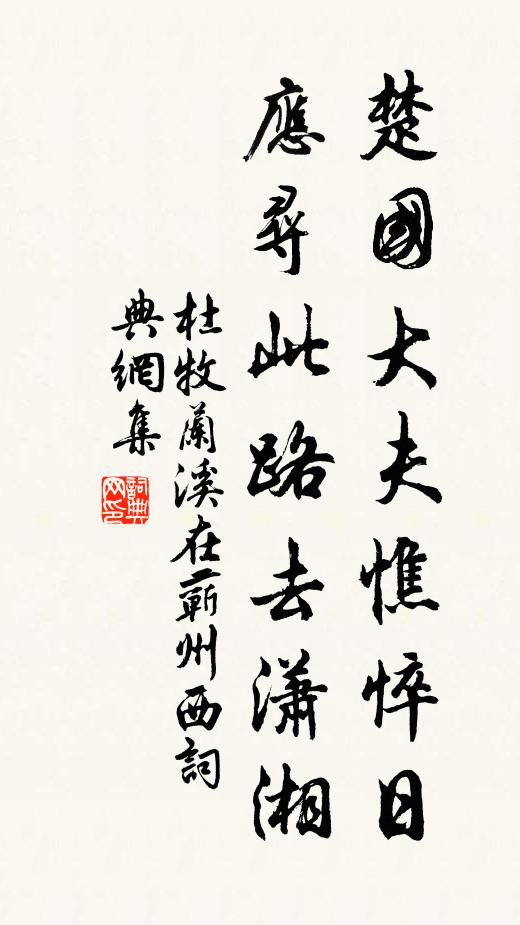 楚國大夫憔悴日
應尋此路去瀟湘
杜牧蘭溪在蘄州西詞
典網集
詞典网印